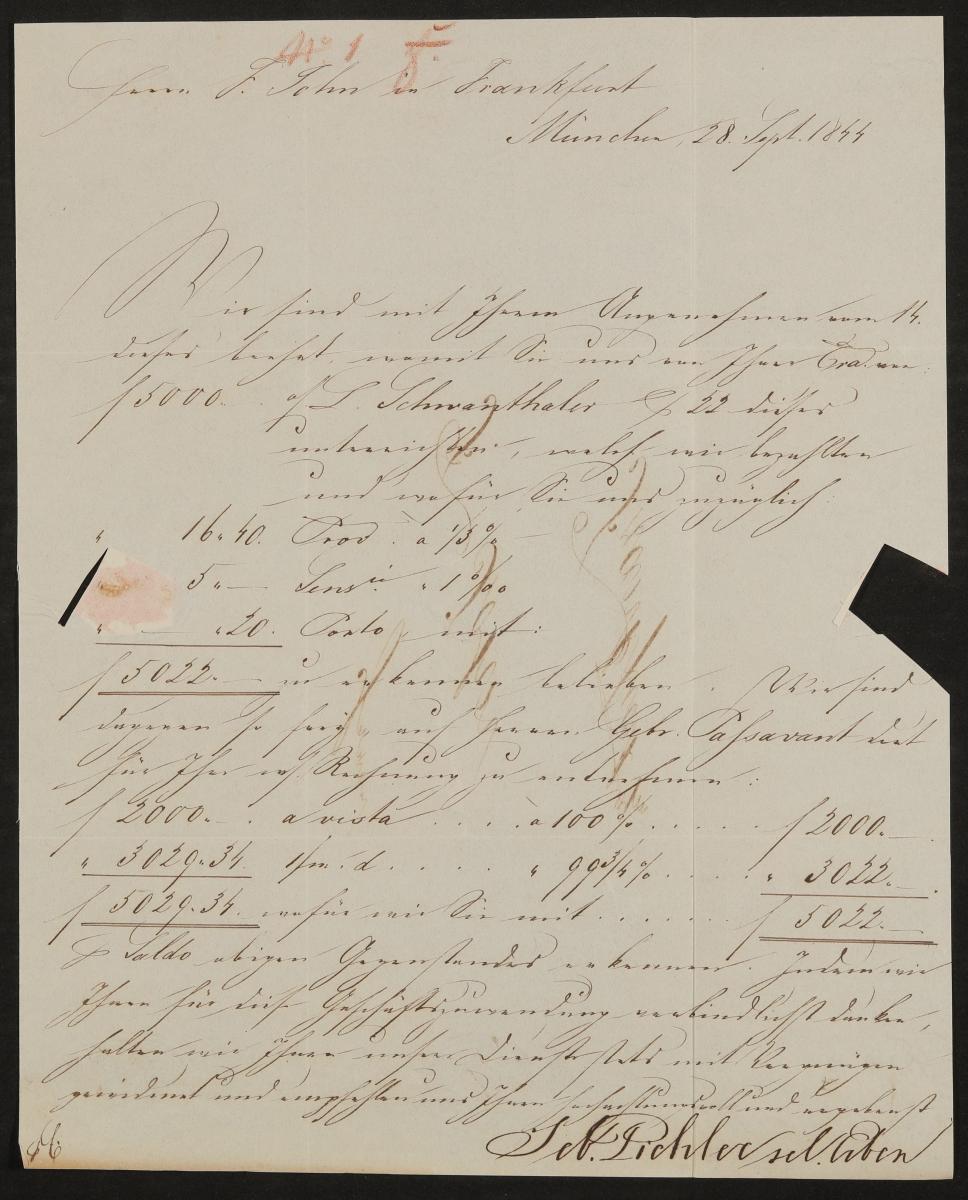 No 1
Herrn F. John in Frankfurt
München, 28. Sept. 1844
Wir sind mit Ihrem Angenehmen vom 14.
dieses beehrt, womit Sie uns von Ihrer Tra. von:
f 5000. a/ L. Schwanthaler 22 dieses
unterrichten, welche wir bezahlten
und wofür Sie uns zuzüglich:
" 16 " 40. Prov. à 1/3 % —
5 " — Sensie. " 1 ‰
" — " 20. Porto, mit:
f 5022. — zu erkennen belieben. Wir sind
dagegen so frei, auf Herren Gebr. Passavant dort
für Ihre w/ Rechnung zu entnehmen:
f 2000. — . a vista . . . . à 100 % . . . . . f 2000. —
" 3029 " 34. 1/m. d. . . . . " 99 3/4 % . . . . . " 3022. — .
f 5029. 34. wofür wir Sie mit . . . . . . . f 5022. —
Saldo obigen Gegenstandes erkennen. Indem wir
Ihnen für diese Geschäftszuwendung verbindlichst danken,
halten wir Ihnen unsere Dienste stets mit Vergnügen
gewidmet und empfehlen uns Ihnen hochachtungsvoll und ergebenst
Seb. Pichler sel. Erben